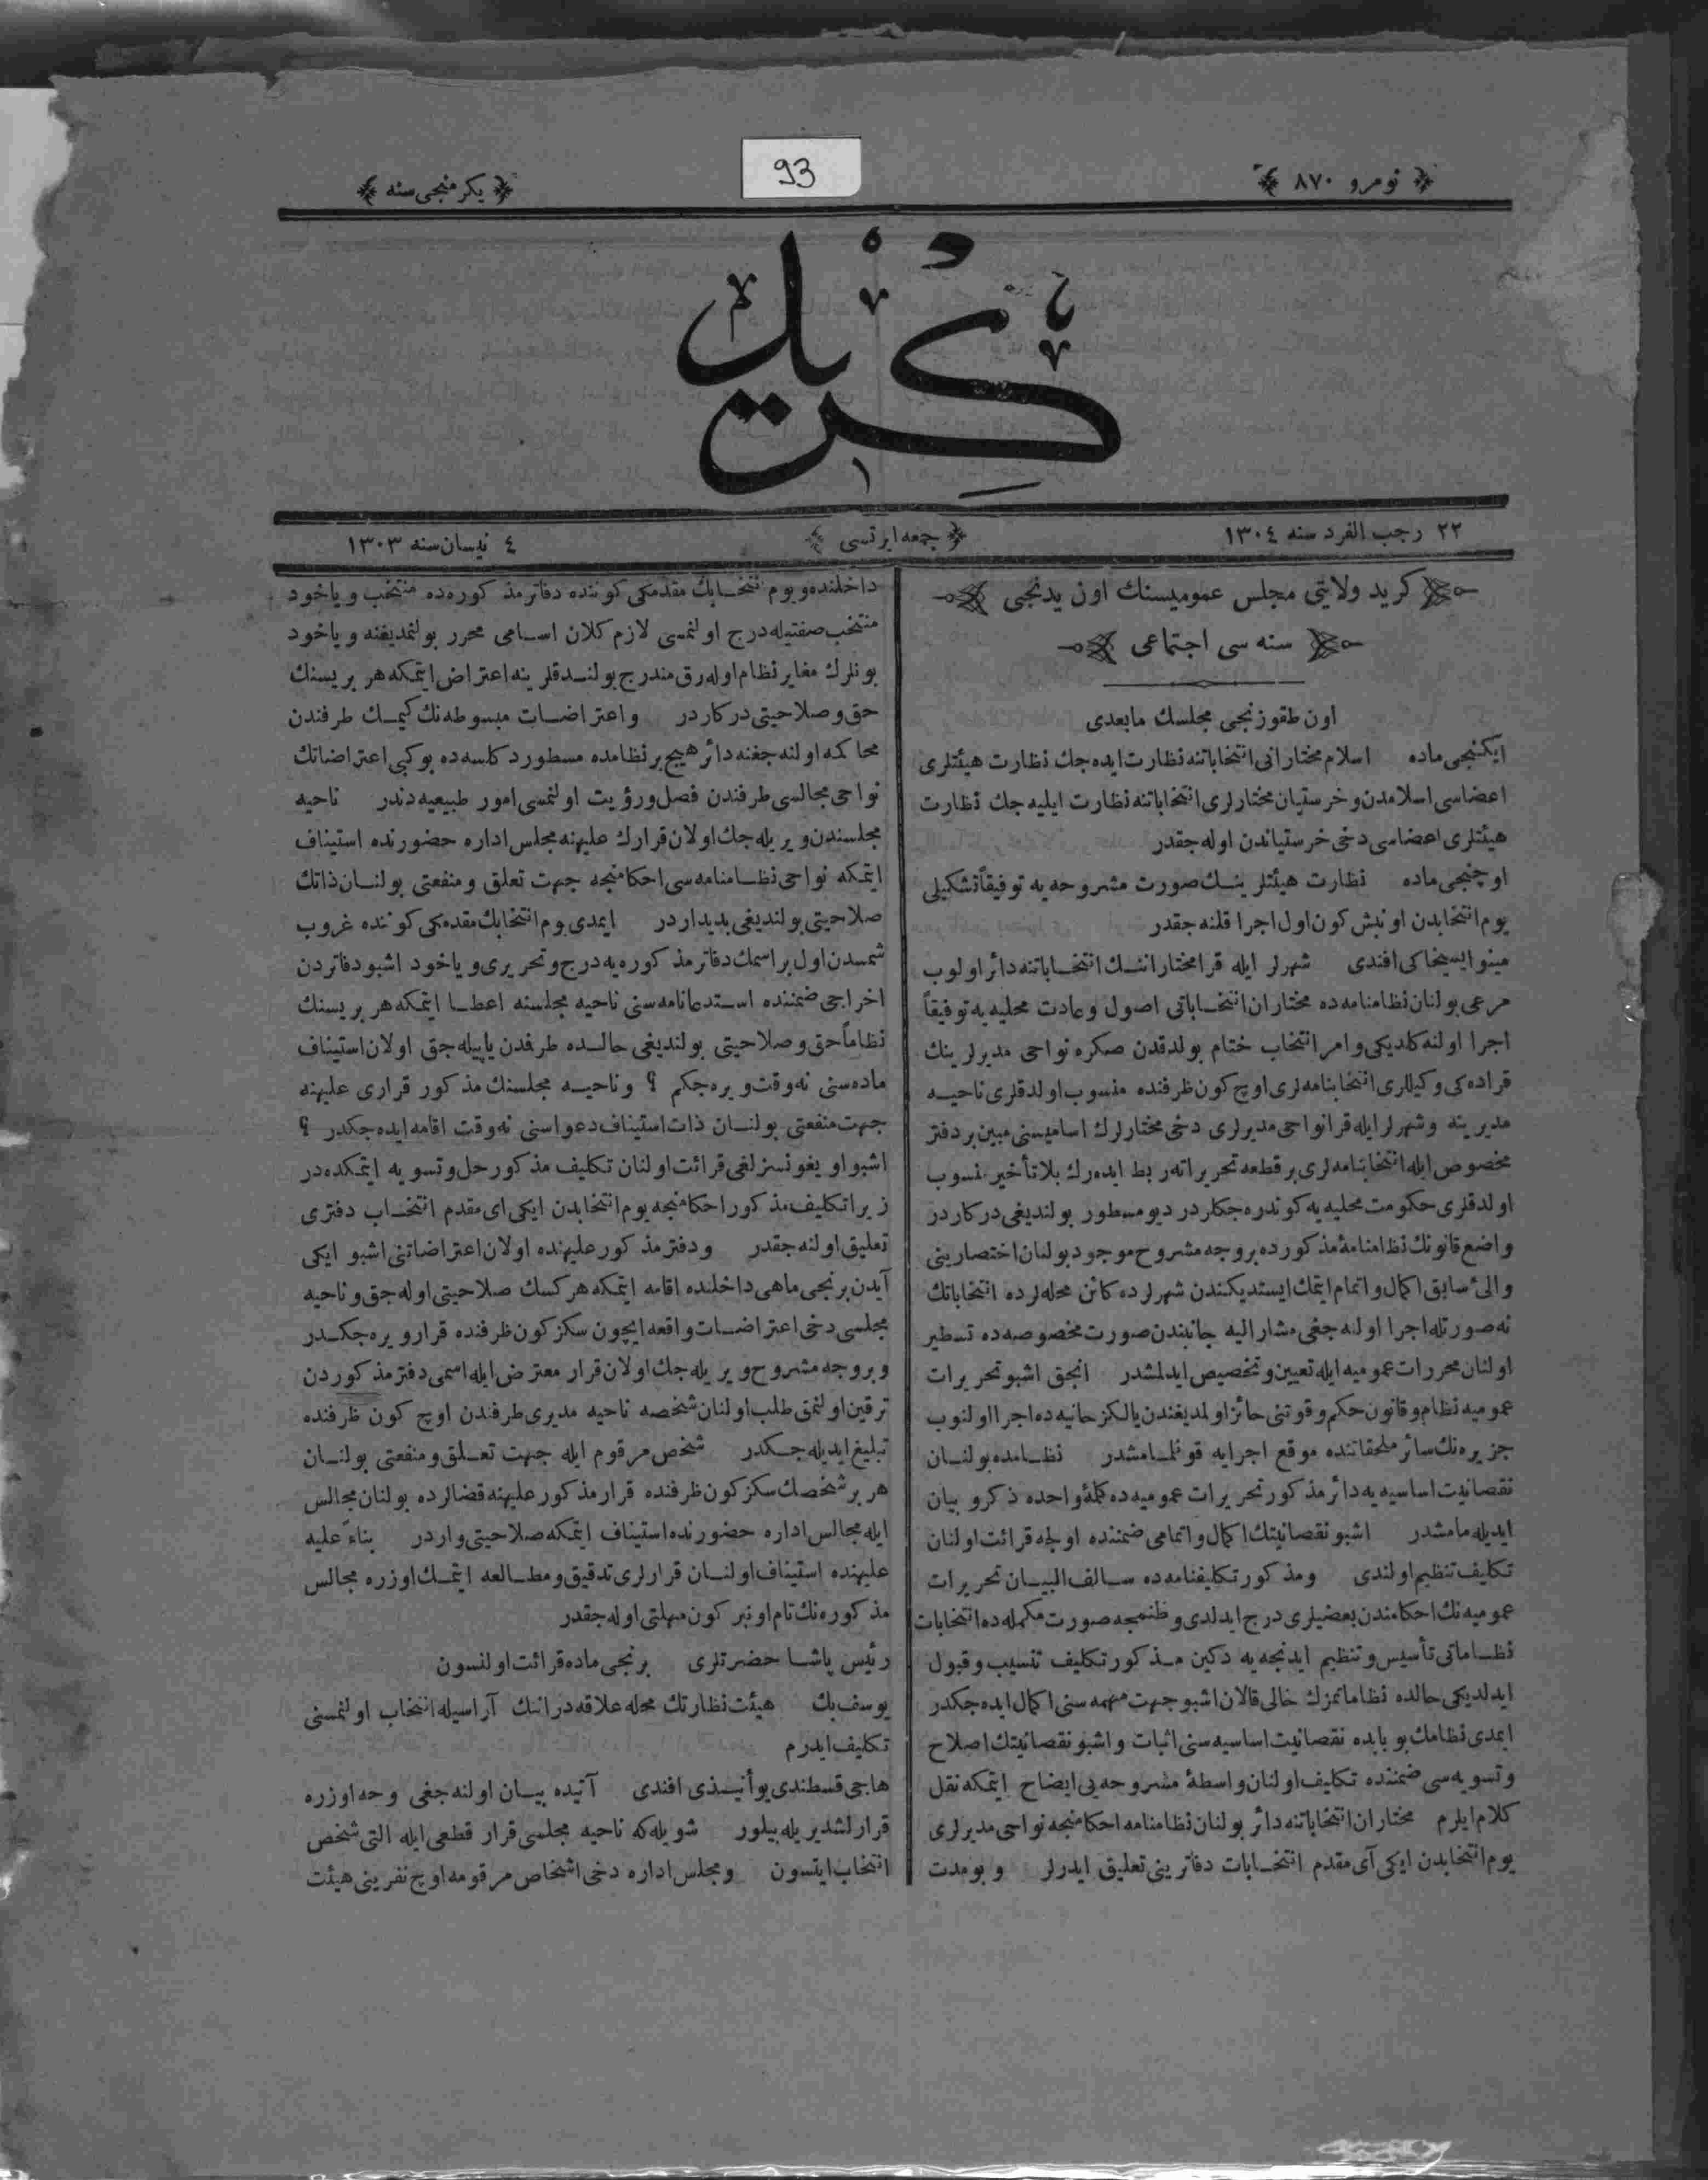 نومرو ٨٧٠
93
يكرمنجى سنه
كريد
٢٢ رجب الفرد سنه ١٣٠٤
جمعه ايرتسى
٤ نيسان سنه ١٣٠٣
كريد ولايتى مجلس عموميسنك اون يدنجى
سنه سى اجتماعى
اون طقوزنجى مجلسك مابعدى
ايكنجى ماده اسلام مختارانى انتخاباتنه نظارت ايده جك نظارت هيئتلرى
اعضاسى اسلامدن و خرستيان مختارلرى انتخاباتنه نظارت ايليه جك نظارت
هيئتلرى اعضاسى دخى خرستياندن اوله جقدر
اوچنجى ماده نظارت هيئتلرينك صورت مشروحه يه توفيقاً تشكيلى
يوم انتخابدن اونبش كون اول اجرا قلنه جقدر
افندى شهرلر ايله قرا مختاراننك انتخاباتنه دائر اولوب
مرعى بولنان نظامنامه ده مختاران انتخاباتى اصول و عادت محليه يه توفيقاً
اجرا اولنه كلديكى و امر انتخاب ختام بولدقدن صكره نواحى مديرلرينك
قراده كى وكيللرى انتخابنامه لرى اوچ كون ظرفنده منسوب اولدقلرى ناحيه
مديرينه و شهرلر ايله قرا نواحى مديرلرى دخى مختارلرك اساميسنى مبين بر دفتر
مخصوص ايله انتخابنامه لرى بر قطعه تحريراته ربط ايده رك بلا تأخير منسوب
اولدقلرى حكومت محليه يه كوندره جكلردر ديو مسطور بولنديغى دركاردر
واضع قانونك نظامنامهٔ مذكورده بر وجه مشروح موجود بولنان اختصارينى
والئ سابق اكمال و اتمام ايتمك ايستديكندن شهرلرده كائن محله لرده انتخاباتك
نه صورتله اجرا اولنه جغى مشار اليه جانبندن صورت مخصوصه ده تسطير
اولنان محررات عموميه ايله تعيين و تخصيص ايدلمشدر انجق اشبو تحريرات
عموميه نظام و قانون حكم و قوتنى حائز اولمديغندن يالكز حانيه ده اجرا اولنوب
جزيره نك سائر ملحقاتنده موقع اجرايه قونلمامشدر نظامده بولنان
نقصانيت اساسيه يه دائر مذكور تحريرات عموميه ده كلمهٔ واحده ذكر و بيان
ايديله مامشدر اشبو نقصانيتك اكمال و اتمامى ضمننده اولجه قرائت اولنان
تكليف تنظيم اولندى و مذكور تكليفنامه ده سالف البيان تحريرات
عموميه نك احكامندن بعضيلرى درج ايدلدى و ظنمجه صورت مكمله ده انتخابات
نظاماتى تأسيس و تنظيم ايدنجه يه دكين مذكور تكليف تنسيب و قبول
ايدلديكى حالده نظاماتمزك خالى قالان اشبو جهت مهمه سنى اكمال ايده جكدر
ايمدى نظامك بو بابده نقصانيت اساسيه سنى اثبات و اشبو نقصانيتك اصلاح
و تسويه سى ضمننده تكليف اولنان واسطهٔ مشروحه يى ايضاح ايتمكه نقل
كلام ايلرم مختاران انتخاباتنه دائر بولنان نظامنامه احكامنجه نواحى مديرلرى
يوم انتخابدن ايكى آى مقدم انتخابات دفاترينى تعليق ايدرلر و بو مدت
داخلنده و يوم انتخابك مقدمكى كوننده دفاتر مذكوره ده منتخب و ياخود
منتخب صفتيله درج اولنمسى لازم كلان اسامى محرر بولنمديغنه و ياخود
بونلرك مغاير نظام اوله رق مندرج بولندقلرينه اعتراض ايتمكه هر بريسنك
حق و صلاحيتى دركاردر و اعتراضات مبسوطه نك كيمك طرفندن
محاكمه اولنه جغنه دائر هيچ بر نظامده مسطور دكلسه ده بو كبى اعتراضاتك
نواحى مجالسى طرفندن فصل و رؤيت اولنمسى امور طبيعيه دندر ناحيه
مجلسندن ويريله جك اولان قرارك عليهنه مجلس اداره حضورنده استيناف
ايتمكه نواحى نظامنامه سى احكامنجه جهت تعلق و منفعتى بولنان ذاتك
صلاحيتى بولنديغى بديداردر ايمدى يوم انتخابك مقدمكى كوننده غروب
شمسدن اول بر اسمك دفاتر مذكوره يه درج و تحريرى و ياخود اشبو دفاتردن
اخراجى ضمننده استدعانامه سنى ناحيه مجلسنه اعطا ايتمكه هر بريسنك
نظاماً حق و صلاحيتى بولنديغى حالده طرفدن ياپيله جق اولان استيناف
ماده سنى نه وقت ويره جكم ؟ و ناحيه مجلسنك مذكور قرارى عليهنه
جهت منفعتى بولنان ذات استيناف دعواسنى نه وقت اقامه ايده جكدر ؟
اشبو اويغونسزلغى قرائت اولنان تكليف مذكور حل و تسويه ايتمكده در
زيرا تكليف مذكور احكامنجه يوم انتخابدن ايكى اى مقدم انتخاب دفترى
تعليق اولنه جقدر و دفتر مذكور عليهنده اولان اعتراضاتنى اشبو ايكى
آيدن برنجى ماهى داخلنده اقامه ايتمكه هركسك صلاحيتى اوله جق و ناحيه
مجلسى دخى اعتراضات واقعه ايچون سكز كون ظرفنده قرار ويره جكدر
و بر وجه مشروح ويريله جك اولان قرار معترض ايله اسمى دفتر مذكوردن
ترقين اولنمق طلب اولنان شخصه ناحيه مديرى طرفندن اوچ كون ظرفنده
تبليغ ايديله جكدر شخص مرقوم ايله جهت تعلق و منفعتى بولنان
هر بر شخصك سكز كون ظرفنده قرار مذكور عليهنه قضالرده بولنان مجالس
ايله مجالس اداره حضورنده استيناف ايتمكه صلاحيتى واردر بناءً عليه
عليهنده استيناف اولنان قرارلرى تدقيق و مطالعه ايتمك اوزره مجالس
مذكوره نك تام اونبر كون مهلتى اوله جقدر
رئيس پاشا حضرتلرى برنجى ماده قرائت اولنسون
يوسف بك هيئت نظارتك محله علاقه دراننك آراسيله انتخاب اولنمسنى
تكليف ايدرم
حاجى افندى آتيده بيان اولنه جغى وجه اوزره
قرارلشديريله بيلور شويله كه ناحيه مجلسى قرار قطعى ايله التى شخص
انتخاب ايتسون و مجلس اداره دخى اشخاص مرقومه اوچ نفرينى هيئت